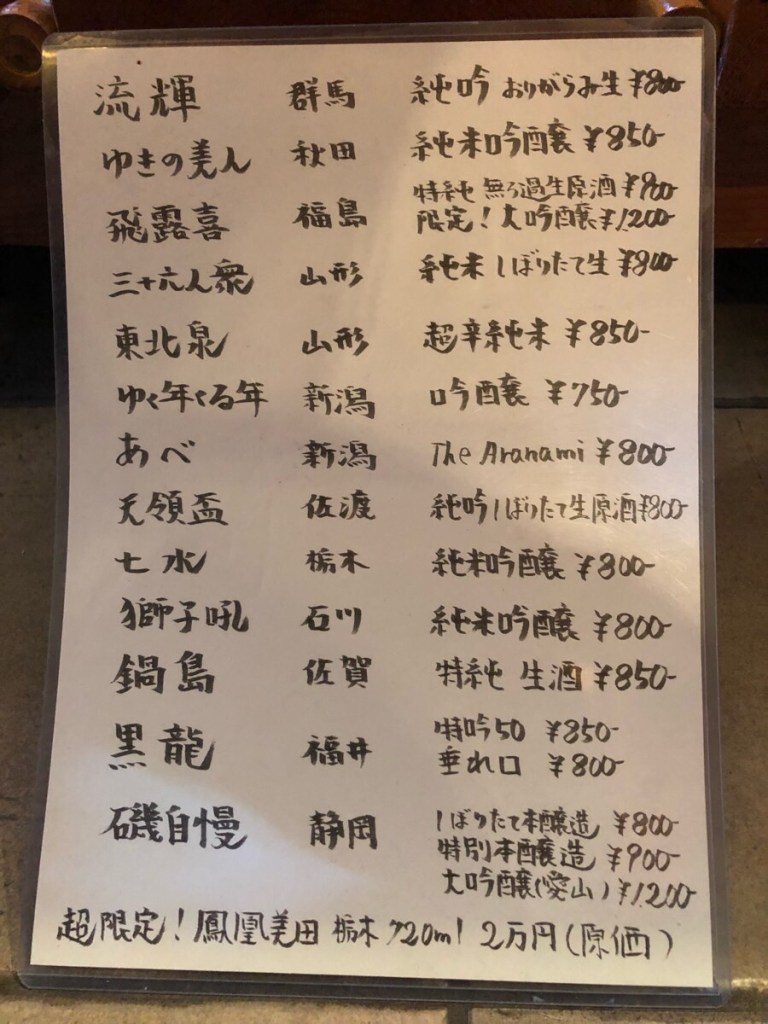 流輝 群馬 純吟 おりがらみ生 ¥800
ゆきの美人 秋田 純米吟醸 ¥850-
飛露喜 福島 特純 無ろ過生原酒 ¥900
限定! 大吟醸 ¥1,200
三十六人衆 山形 純米 しぼりたて生 ¥800
東北泉 山形 超辛純米 ¥850-
ゆく年くる年 新潟 吟醸 ¥750-
あべ 新潟 The Aranami ¥800-
天領盃 佐渡 純吟しぼりたて生原酒 ¥800-
七水 栃木 純米吟醸 ¥800-
獅子吼 石川 純米吟醸 ¥800-
鍋島 佐賀 特純 生酒 ¥850-
黒龍 福井 特吟50 ¥850-
垂れ口 ¥800-
磯自慢 静岡 しぼりたて本醸造 ¥800-
特別本醸造 ¥900-
大吟醸(愛山) ¥1,200-
超限定! 鳳凰美田 栃木 720ml 2万円(原価)